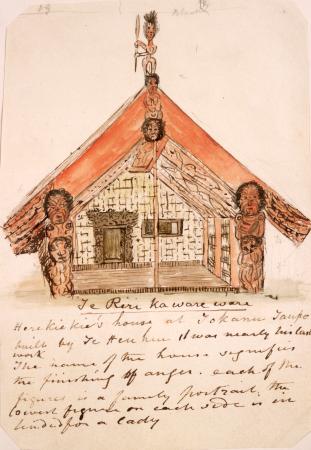 Te Riri ka ware ware
Herekiekie's house at Tokanu Taupo
built by Te Heu heu it was nearly his last
work
The name of the house signifies
the finishing of anger. each of the
figures is a family portrait, the
lowest figure on each side is in
tended for a lady